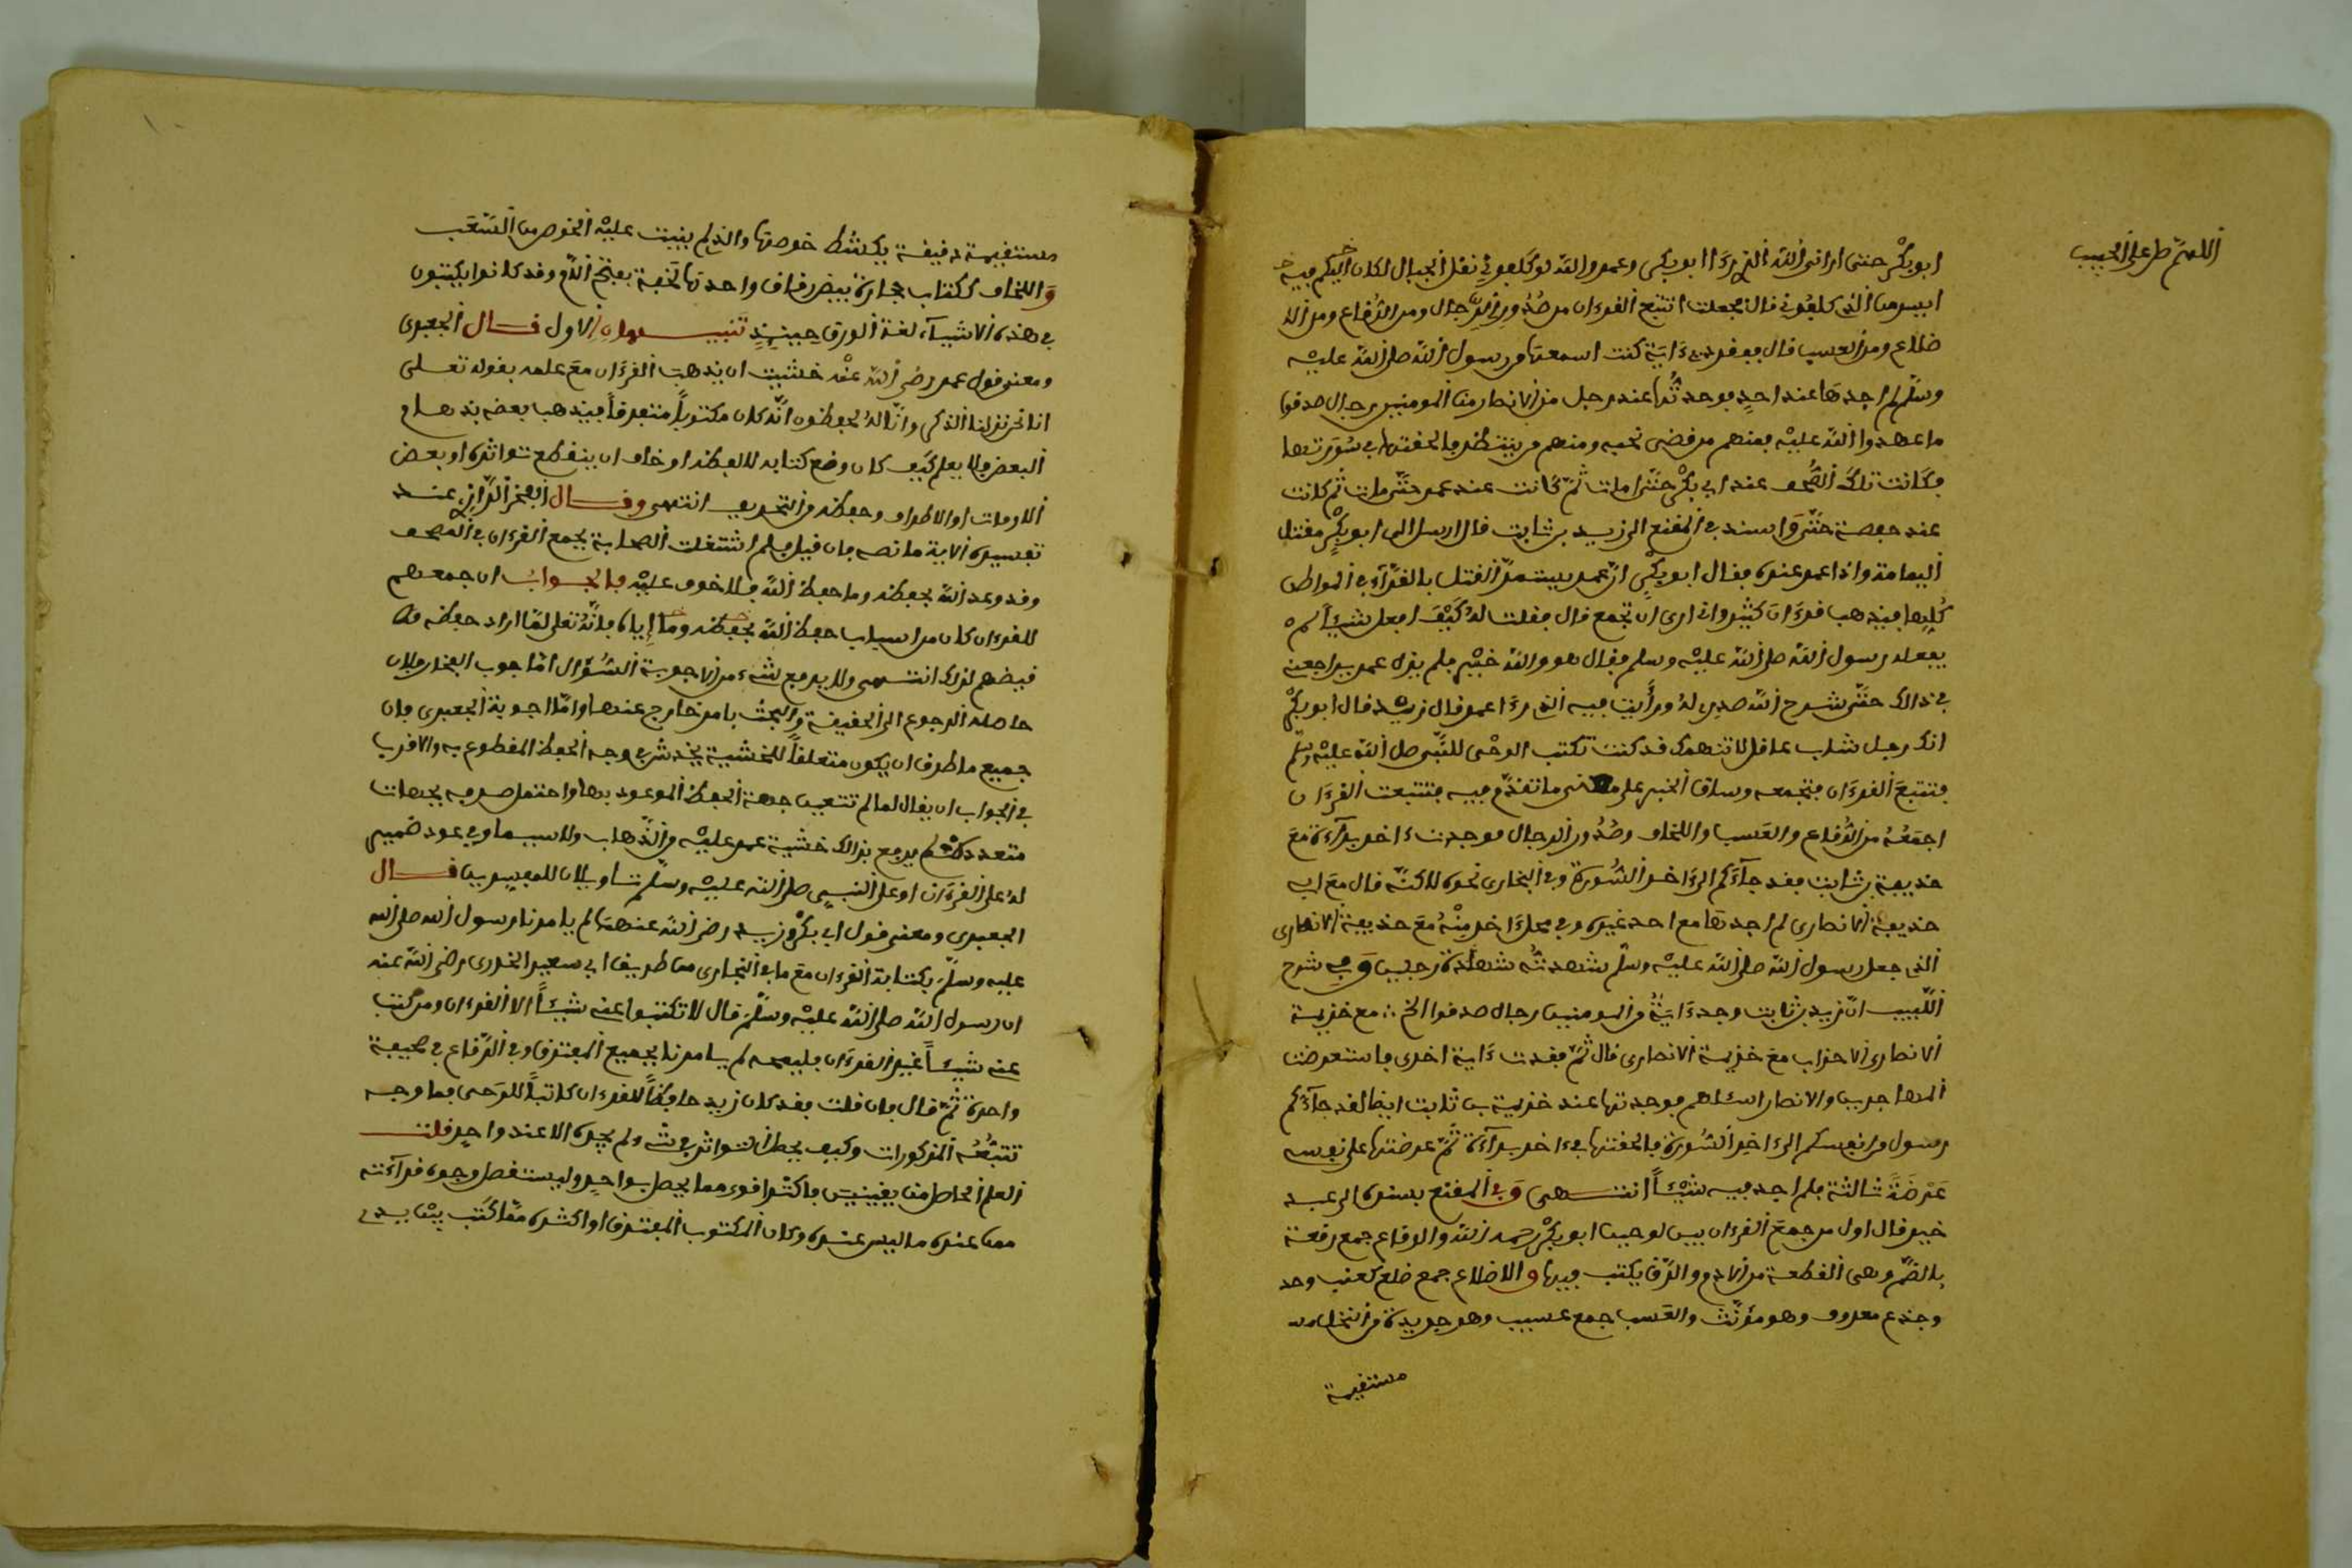 اللهم صل على الحبيب
ابو بكر حتى اراني الله الذي رءا ابو بكر وعمر والله لو كلفوني نقل الجبال لكان اليكم فيه
ايسر من الذي كلفوني قال فجعلت اتتبع القرءان من صدور الرجال ومن الرقاع ومن الا
ضلاع ومن العسب قال ففقدت ءاية كنت اسمعها من رسول الله صلى الله عليه
وسلم لم اجدها عند احد فوجدتها عند رجل من الانصار من المومنين رجال صدقوا
ما عهدوا الله عليه فمنهم من قضى نحبه ومنهم من ينتظر فالحقتها في سورتها
فكانت تلك الصحف عند ابي بكر حتى مات ثم كانت عند عمر حتى مات ثم كانت
عند حفصة حتى واسند في المقنع الى زيد بن ثابت قال ارسل الى ابو بكر مقتل
اليمامة واذا عمر عنده فقال ابو بكر ان عمر يستمر القتل بالقراء في المواطن
كلها فيذهب قرءان كثير واني ارى ان تجمع قال فقلت له كيف افعل شيئا لم
يفعله رسول الله صلى الله عليه وسلم فقال هو والله خير فلم يزل عمر يراجعني
في ذالك حتى شرح الله صدري له ورأيت فيه الذي رءا عمر قال زيد قال ابو بكر
انك رجل شاب عاقل لا نتهمك قد كنت تكتب الوحي للنبي صلى الله عليه وسلم
فتتبع القرءان فتجمعه وساق الخبر على معنى ما تقدم فيه فتتبعت القرءان
اجمعه من الرقاع والعسب واللخاف وصدور الرجال فوجدت ءاخر براءة مع
خذيمة بن ثابت لقد جاءكم الى ءاخر السورة وفي البخاري نحوه لاكنه قال مع ابي
خذيمة الانصاري لم اجدها مع احد غيره وفي محل ءاخر منه مع خذيمة الانصاري
الذي جعل رسول الله صلى الله عليه وسلم شهدته شهادة رجلين وفي شرح
اللبيب ان زيد بن ثابت وجد ءاية من المومنين رجال صدقوا الخ مع خزيمة
الانصاري الاحزاب مع خزيمة الانصاري قال ثم فقدت ءاية اخرى فاستعرضت
المهاجرين والانصار اسئلهم فوجدتها عند خزيمة بن ثابت ايضا لقد جاءكم
رسول من انفسكم الى ءاخر السورة فالحقتها في ءاخر براءة ثم عرضتها على نفسي
عرضة ثالثة فلم اجد فيه شيئا انتهى وفي المقنع بسنده الى عبد
خير قال اول من جمع القرءان بين لوحين ابو بكر رحمه الله والرقاع جمع رقعة
بالضم وهي القطعة من الادم والرق يكتب فيها والاضلاع جمع ضلع كعنب وحد
وجذع معروف وهو مؤنث والعسب جمع عسيب وهو جريدة من النخل
مستقيمة
مستقيمة دقيقة يكشط خوصها والذي لم ينبت عليه الخوص من السعف
واللخاف ككتاب حجارة بيض رقاق واحدتها لخفة بفتح اللام وقد كانوا يكتبون
في هذه الاشياء لقلة الورق حينئذ تنبيهان الاول قال الجعبري
ومعنى قول عمر رضي الله عنه خشيت ان يذهب القرءان مع علمه بقوله تعلى
انا نحن نزلنا الذكر وانا له لحفظون انه كان مكتوبا متفرقا فيذهب بعضه بذهاب
البعض فلا يعلم كيف كان وضع كتابه لا لفظه او خاف ان ينقطع تواتره او بعض
الاوقات او الاطراف وحفظه من التحريف انتهى وقال الفخر الرازي عند
تفسيره الاية ما نصه فان قيل فلم اشتغلت الصحابة بجمع القرءان في المصحف
وقد وعد الله بحفظه وما حفظ الله فلا خوف عليه فالجواب ان جمعهم
للقرءان كان من اسباب حفظ الله اياه فانه تعلى لما اراد حفظه
قيضهم لذلك انتهى ولا يدفع شيء من الاجوبة السؤال اما جوب الفخار فلان
حاصله الرجوع الى الحقيقة والبحث بامر خارج عنها واما اجوبة الجعبري فان
جميع ما طرق ان يكون متعلقا للخشية يخدش في وجه الحفظ المقطوع به والاقرب
في الجواب ان يقال لما لم تتعين جهة الحفظ الموعود بها واحتمل صرفه بجهات
متعددة لم يدفع بذالك خشية عمر عليه من الذهاب ولا سيما وفي عود ضمير
له على القرءان او على النبي صلى الله عليه وسلم تاويلان للمفسرين قال
الجعبري ومعنى قول ابي بكر وزيد رضي الله عنهما لم يامرنا رسول الله صلى الله
عليه وسلم بكتابة القرءان مع ما في البخاري من طريق ابي سعيد الخدري رضي الله عنه
ان رسول الله صلى الله عليه وسلم قال لا تكتبوا عني شيئا الا القرءان ومن كتب
عني شيئا غير القرءان فليمحه لم يامرنا بجميع المفترق وفي الرقاع في صحيفة
واحدة ثم قال فان قلت فقد كان زيد حافظا للقرءان كاتبا للوحي فما وجه
تتبعه المذكورات وكيف يحصل التواتر في شيء ولم يجده الا عند واحد قلت
العلم الحاصل من يقينين فاكثر اقوى مما يحصل بواحد وليستفصل وجوه قراءته
ممن عنده ما ليس عنده وكان المكتوب المفترق او اكثره مما كتب بين يدي